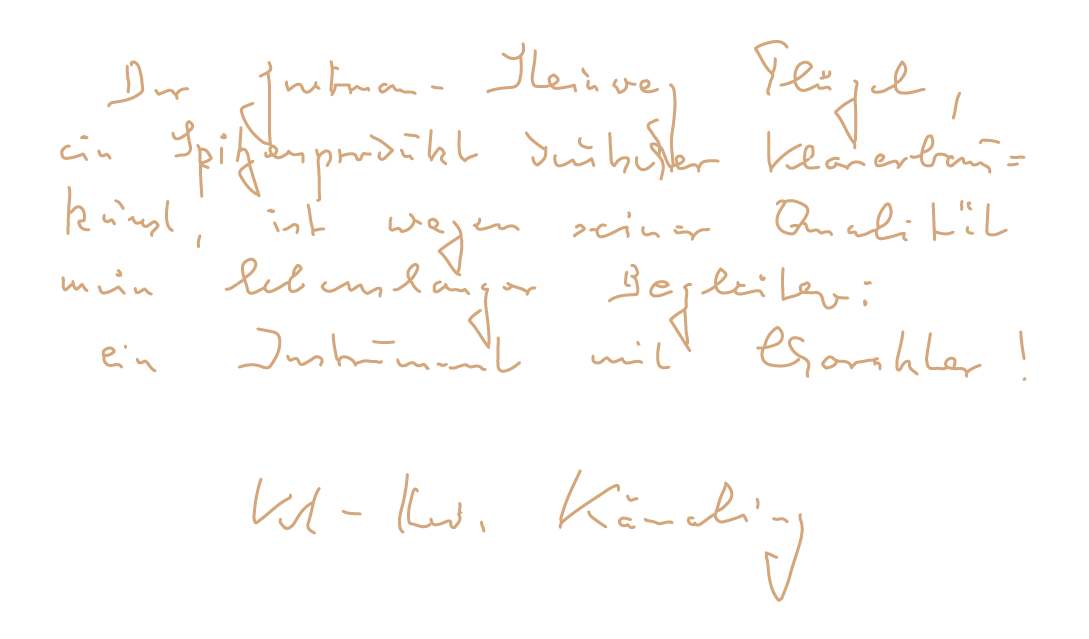 Der Grotrian-Steinweg Flügel,
ein Spitzenprodukt deutscher Klavierbau=
kunst, ist wegen seiner Qualität
mein lebenslanger Begleiter:
ein Instrument mit Charakter!
Kämmerling